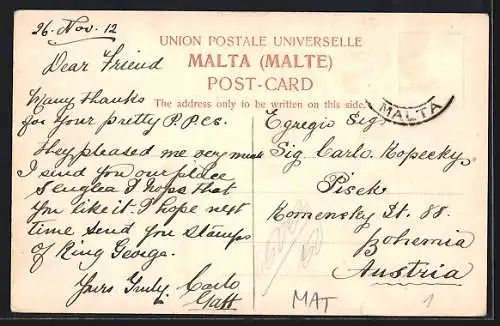 26. Nov. 12
Dear Friend
Many thanks
for Your pretty P.P.Cs.
They pleased me very much
I send You our place
Senglea I hope that
You like it. I hope next
time send you stamps
of King George.
Yours Truly Carlo
Gatt
UNION POSTALE UNIVERSELLE
MALTA (MALTE)
POST-CARD
The address only to be written on this side.
MALTA
Egregio Sig.
Sig. Carlo. Kopecky
Pisek
Komensky St. 88.
Bohemia
Austria
MAT
1